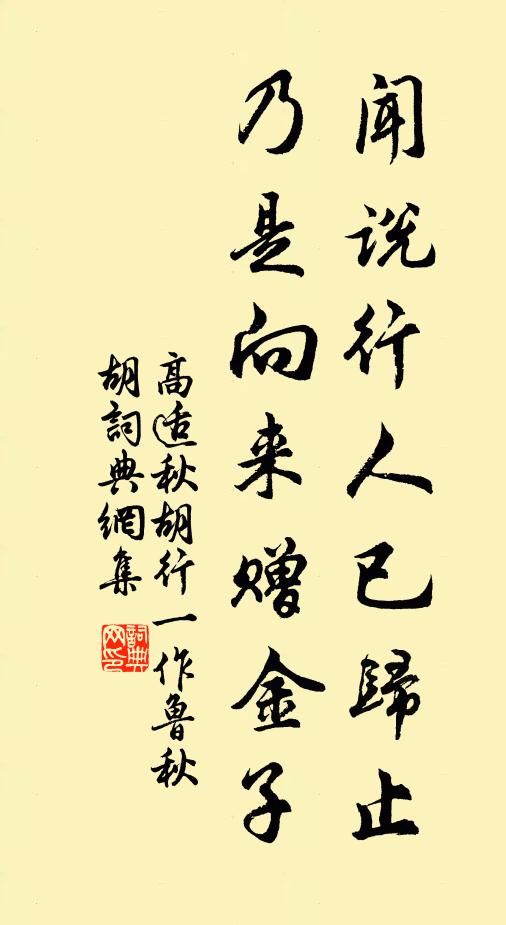 闻说行人已歸止
乃是向来赠金子
高适秋胡行一作鲁秋
胡詞典網集
詞典
网印